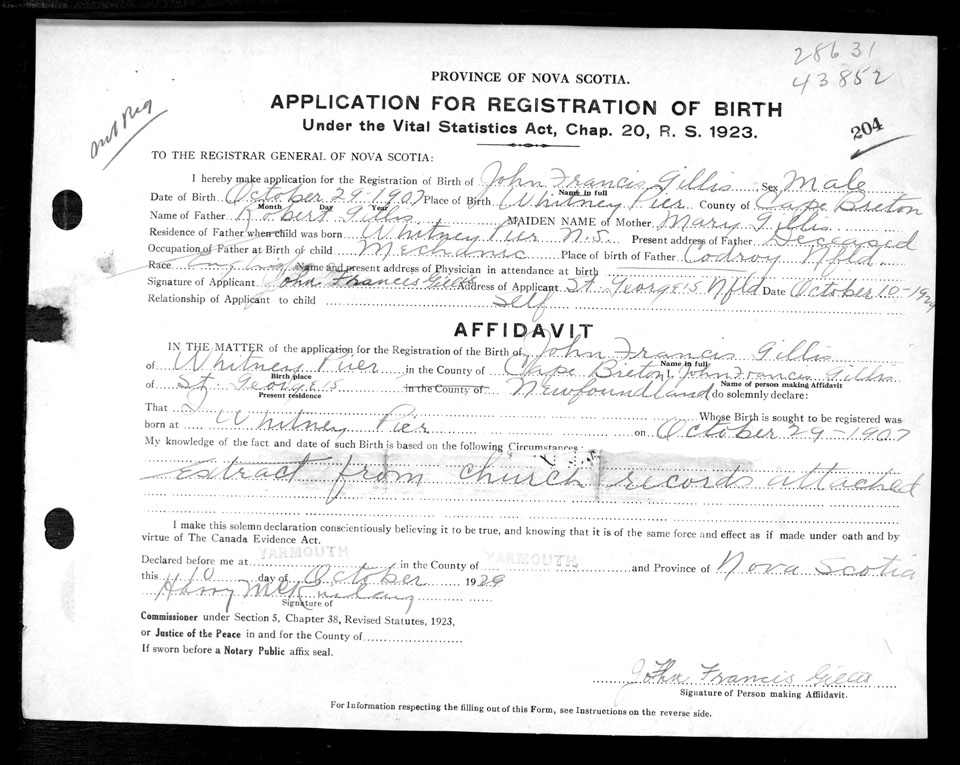 28631
43852
204
PROVINCE OF NOVA SCOTIA.
APPLICATION FOR REGISTRATION OF BIRTH
Under the Vital Statistics Act, Chap. 20, R. S. 1923.
TO THE REGISTRAR GENERAL OF NOVA SCOTIA:
I hereby make application for the Registration of Birth of John Francis Gillis, Sex Male
Name in full
Date of Birth October 29-1907 Place of Birth Whitney Pier County of Cape Breton
Month Day Year
Name of Father Robert Gillis MAIDEN NAME of Mother Mary Gillis
Residence of Father when child was born Whitney Pier N.S. Present address of Father Deceased
Occupation of Father at Birth of child Mechanic Place of birth of Father Codroy Nfld.
Race English Name and present address of Physician in attendance at birth
Signature of Applicant John Francis Gillis Address of Applicant St. George's Nfld Date October 10-1929
Relationship of Applicant to child Self
AFFIDAVIT
IN THE MATTER of the application for the Registration of the Birth of John Francis Gillis
Name in full
of Whitney Pier in the County of Cape Breton I, John Francis Gillis
Birth place Name of person making Affidavit
of St. George's in the County of Newfoundland do solemnly declare:
Present residence
That I Whose Birth is sought to be registered was
born at Whitney Pier on October 29-1907
My knowledge of the fact and date of such Birth is based on the following Circumstances:
Extract from church records attached
I make this solemn declaration conscientiously believing it to be true, and knowing that it is of the same force and effect as if made under oath and by
virtue of The Canada Evidence Act.
Declared before me at YARMOUTH in the County of YARMOUTH and Province of Nova Scotia
this 10 day of October 1929
Harry
Signature of
Commissioner under Section 5, Chapter 38, Revised Statutes, 1923,
or Justice of the Peace in and for the County of
If sworn before a Notary Public affix seal.
John Francis Gillis
Signature of Person making Affidavit.
For Information respecting the filling out of this Form, see Instructions on the reverse side.